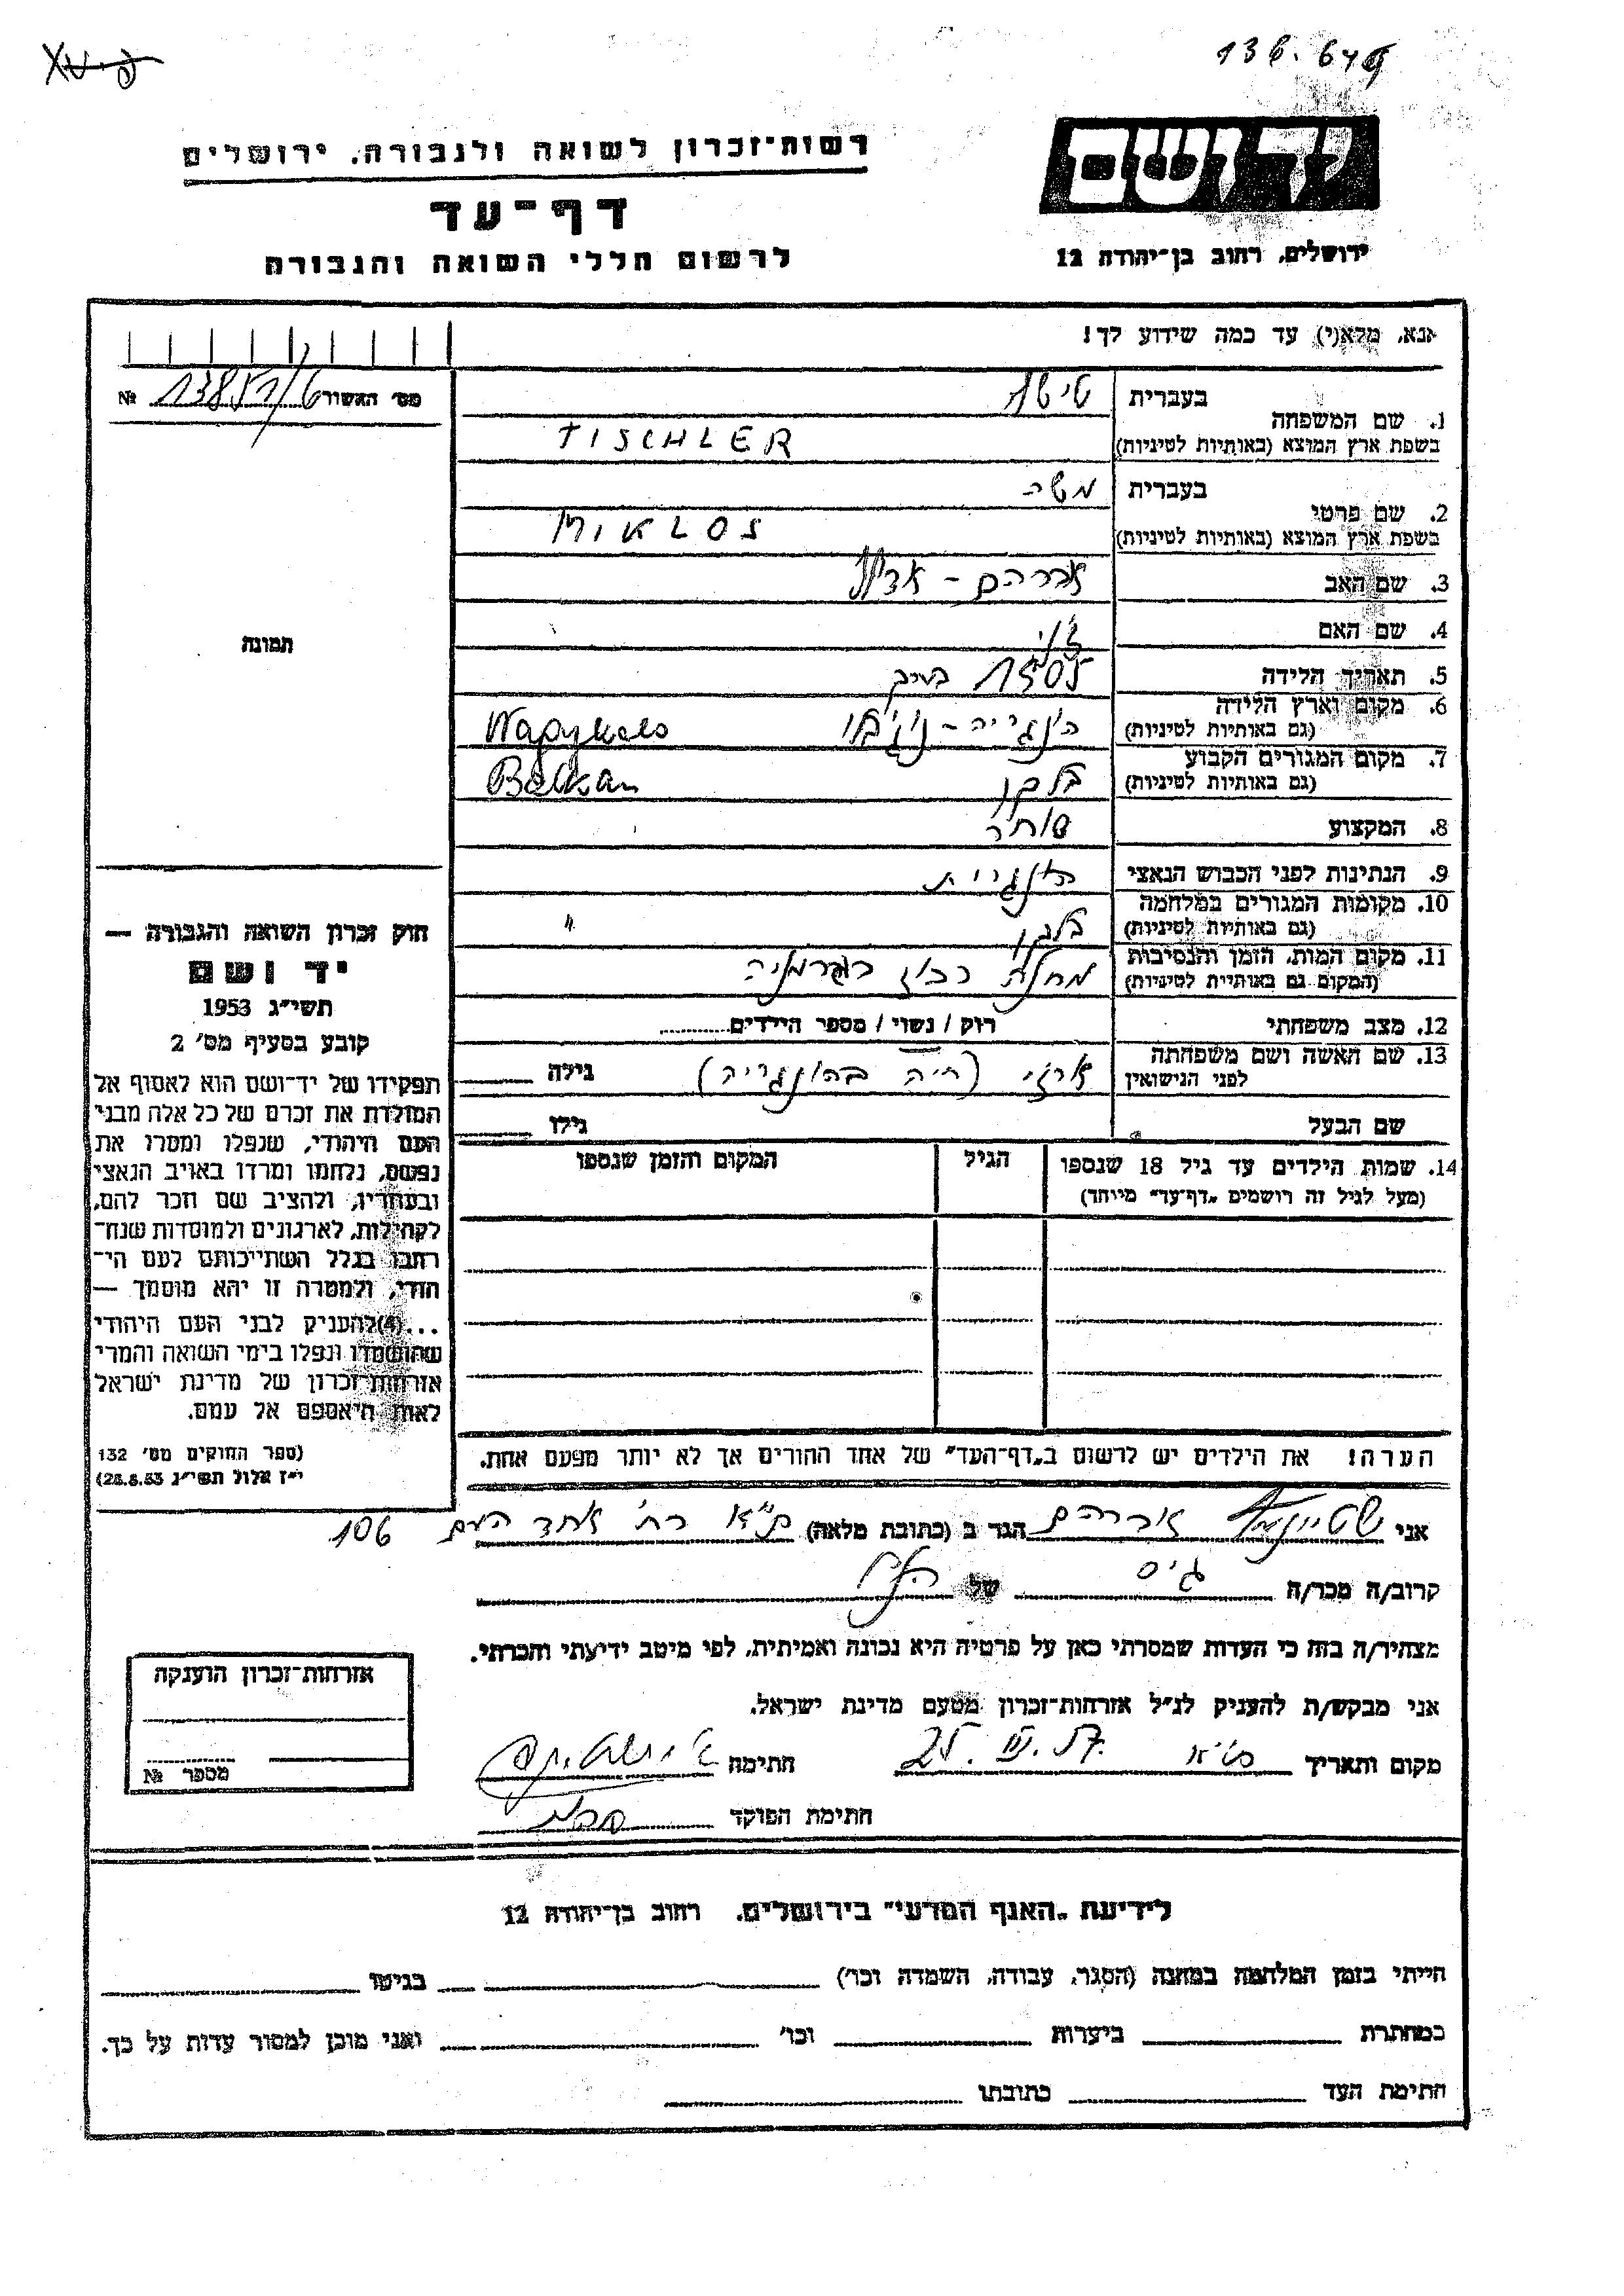 136. 646
רשות־זכרון לשואה ולגבורה, ירושלים
יד ושם
דף־עד
לרשום חללי השואה והגבורה
ירושלים, רחוב בן־יהודה 12
אנא, מלא(י) עד כמה שידוע לך!
מס' האשור №
בעברית
1. שם המשפחה
TISCHLER
בשפת ארץ המוצא (באותיות לטיניות)
בעברית משה
2. שם פרטי
MIKLOS
בשפת ארץ המוצא (באותיות לטיניות)
3. שם האב אברהם -
4. שם האם
5. תאריך הלידה 1905
6. מקום וארץ הלידה
(גם באותיות לטיניות) הונגריה -
7. מקום המגורים הקבוע
(גם באותיות לטיניות) בלקן Balkan
8. המקצוע סוחר
9. הנתינות לפני הכבוש הנאצי הונגרית
10. מקומות המגורים במלחמה
(גם באותיות לטיניות) בלקן "
11. מקום המות, הזמן והנסיבות
(המקום גם באותיות לטיניות) מחנה רכוז בגרמניה
12. מצב משפחתי רווק / נשוי / מספר הילדים
13. שם האשה ושם משפחתה
לפני הנישואין (חיה בהונגריה) גילה
שם הבעל גילו
14. שמות הילדים עד גיל 18 שנספו הגיל המקום והזמן שנספו
(מעל לגיל זה רושמים "דף־עד" מיוחד)
הערה! את הילדים יש לרשום ב"דף־העד" של אחד ההורים אך לא יותר מפעם אחת.
תמונה
חוק זכרון השואה והגבורה —
יד ושם
תשי"ג 1953
קובע בסעיף מס' 2
תפקידו של יד־ושם הוא לאסוף אל
המולדת את זכרם של כל אלה מבני
העם היהודי, שנפלו ומסרו את
נפשם, נלחמו ומרדו באויב הנאצי
ובעוזריו, ולהציב שם וזכר להם,
לקהילות, לארגונים ולמוסדות שנח־
רבו בגלל השתייכותם לעם הי־
הודי, ולמטרה זו יהא מוסמך —
...(4) להעניק לבני העם היהודי
שהושמדו ונפלו בימי השואה והמרי
אזרחות־זכרון של מדינת ישראל
לאות היאספם אל עמם.
(ספר החוקים מס' 132
י"ז אלול תשי"ג 28.8.53)
אני אברהם הגר ב (כתובת מלאה) ת"א רח' אחד העם 106
קרוב/ה מכר/ה גיס של הנ"ל
מצהיר/ה בזה כי העדות שמסרתי כאן על פרטיה היא נכונה ואמיתית, לפי מיטב ידיעתי והכרתי.
אני מבקש/ת להעניק לנ"ל אזרחות־זכרון מטעם מדינת ישראל.
מקום ותאריך ת"א 25. III. 57. חתימה
חתימת הפוקד
אזרחות־זכרון הוענקה
מספר №
לידיעת "האגף המדעי" בירושלים, רחוב בן־יהודה 12
הייתי בזמן המלחמה במחנה (הסגר, עבודה, השמדה וכו') בגיטו
במחתרת ביערות וכו' ואני מוכן למסור עדות על כך.
חתימת העד כתובתו